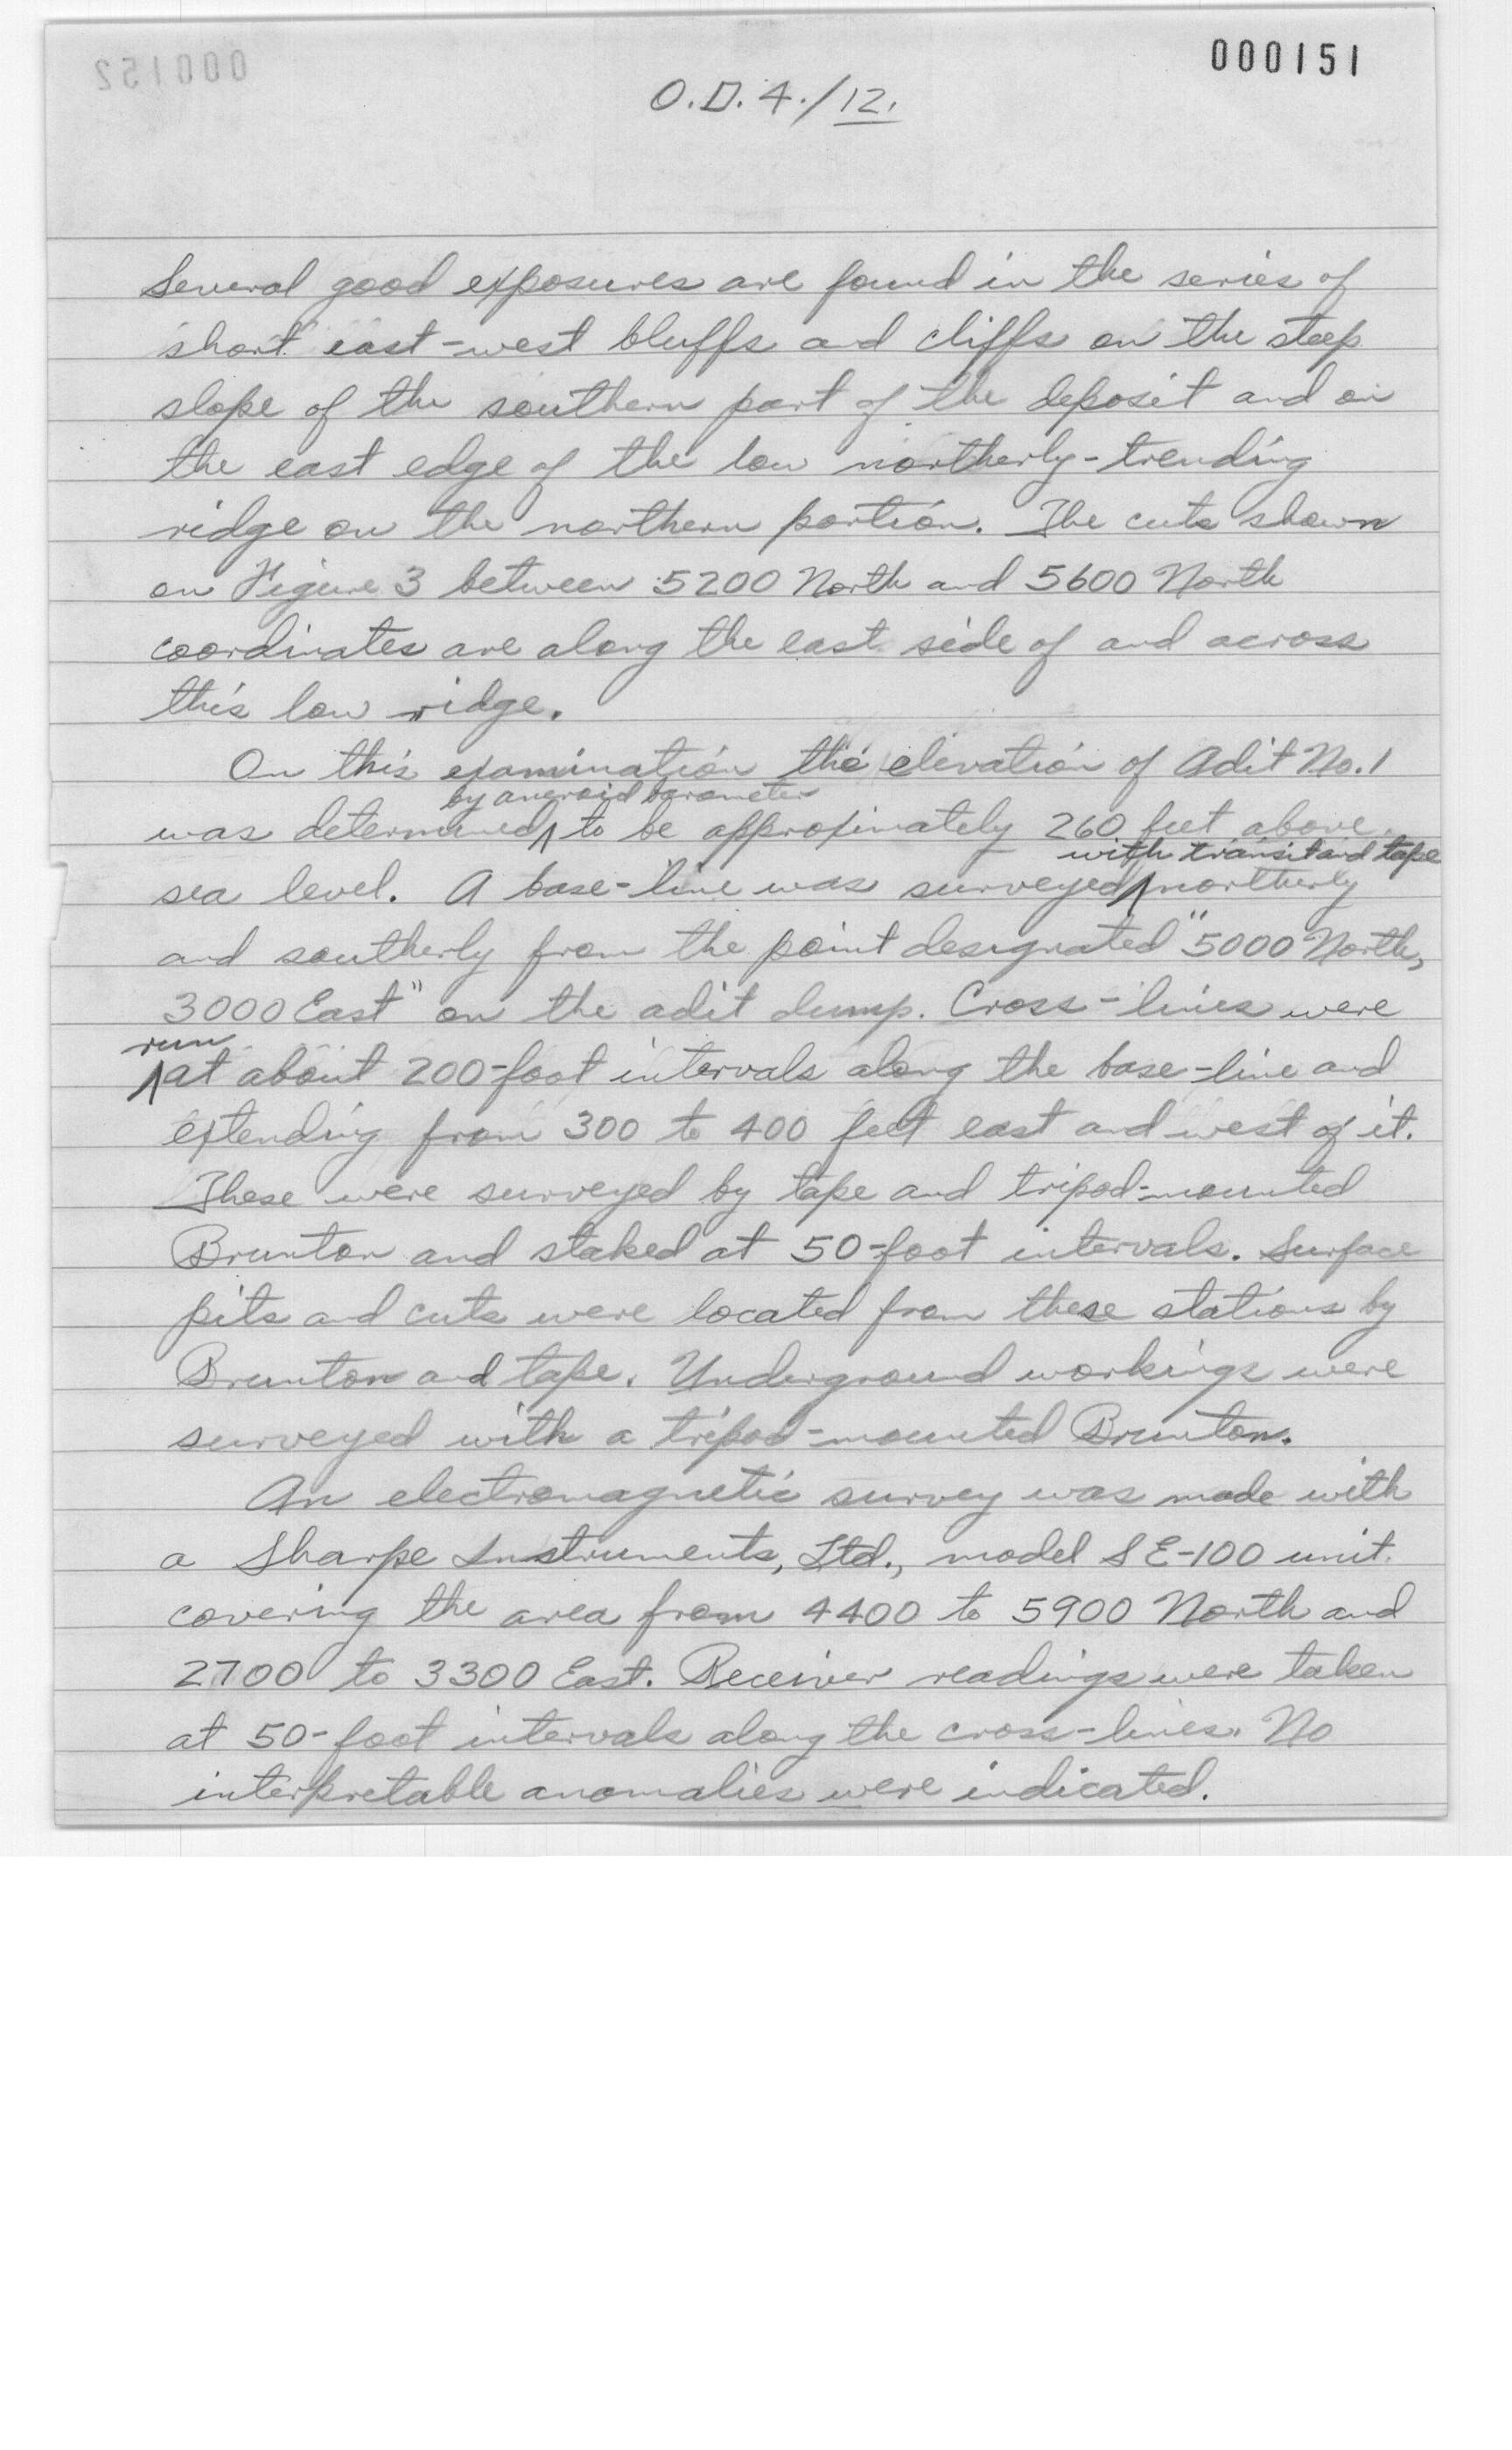 000151
000152
O.D.4./12.
Several good exposures are found in the series of
short east-west bluffs and cliffs on the steep
slope of the southern part of the deposit and on
the east edge of the low northerly-trending
ridge on the northern portion. The cuts shown
on Figure 3 between 5200 North and 5600 North
coordinates are along the east side of and across
this low ridge.
On this examination the elevation of Adit No. 1
by aneroid barometer
was determined ∧ to be approximately 260 feet above
with transit and tape
sea level. A base-line was surveyed ∧ northerly
and southerly from the point designated "5000 North,
3000 East" on the adit dump. Cross-lines were
run
∧ at about 200-foot intervals along the base-line and
extending from 300 to 400 feet east and west of it.
These were surveyed by tape and tripod-mounted
Brunton and staked at 50-foot intervals. Surface
pits and cuts were located from these stations by
Brunton and tape. Underground workings were
surveyed with a tripod-mounted Brunton.
An electromagnetic survey was made with
a Sharpe Instruments, Ltd., model SE-100 unit.
covering the area from 4400 to 5900 North and
2700 to 3300 East. Receiver readings were taken
at 50-foot intervals along the cross-lines. No
interpretable anomalies were indicated.